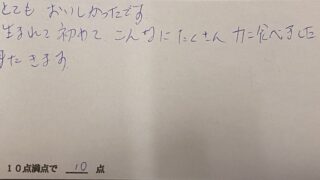 とても おいしかったです
生まれて初めて こんなに たくさん カニ食べました
またきます。
10点満点で 10 点